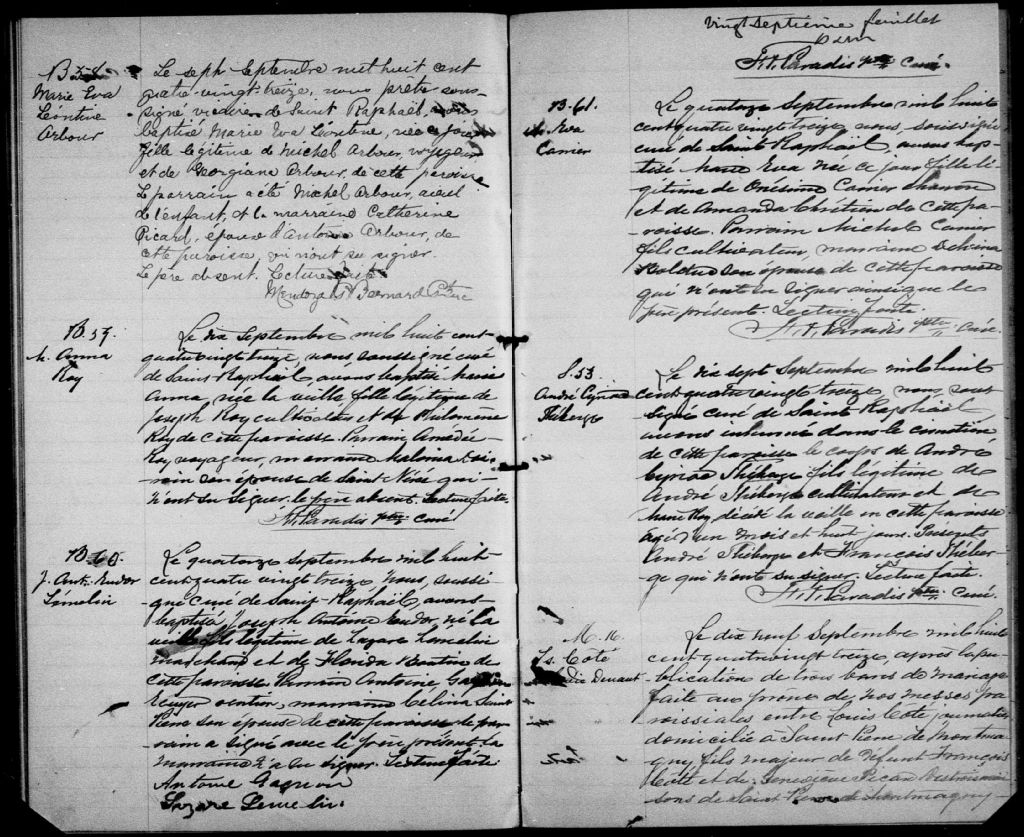 B 58
Marie Eva
Leontine
Arbour
Le sept Septembre mil huit cent
quatre-vingt treize, nous prêtre sous-
signé vicaire de Saint Raphaël, avons
baptisé Marie Eva Leontine, née ce jour
fille légitime de Michel Arbour, voyageur
et de Georgiane Arbour, de cette paroisse
Le parrain a été Michel Arbour, aieul
de l'enfant, et la marraine Catherine
Picard, épouse d'Antoine Arbour, de
cette paroisse, qui n'ont su signer.
Le père absent. Lecture faite
Bernard Ptre
B. 59.
M. Anna
Roy
Le dix Septembre mil huit cent
quatre vingt treize, nous soussigné curé
de Saint Raphaël avons baptisé Marie
Anna, née la veille fille légitime de
Joseph Roy cultivateur et de Philomène
Roy de cette paroisse Parrain Amédée
Roy voyageur, marraine
son épouse de Saint Nérée qui
n'ont su signer le père absent. Lecture faite
Paradis Ptre curé
B. 60.
J. Ant. Eudor
Lemelin
Le quatorze septembre mil huit
cent quatre vingt treize Nous, soussi-
gné curé de Saint-Raphaël, avons
baptisé Joseph Antoine Eudor, né la
veille fils légitime de Lazare Lemelin
marchand et de Florida
cette paroisse Parrain Antoine Gagnon
marraine Celina Saint
Pierre son épouse de cette paroisse le par-
rain a signé avec le père présent. La
marraine n'a su signer. Lecture faite
Antoine Gagnon
Lazare Lemelin.
Vingt septième feuillet
Paradis Ptre Curé.
B. 61.
M. Eva
Camier
Le quatorze Septembre mil huit
cent quatre vingt treize nous, soussigné
curé de Saint Raphaël, avons bap-
tisé Marie Eva née ce jour fille lé-
gitime de Onésime Camier
et de Amanda Chrétien de cette pa-
roisse. Parrain Michel Camier
fils cultivateur, marraine
Bolduc son épouse de cette paroisse
qui n'ont su signer ainsi que le
père présent. Lecture faite.
Paradis Ptre Curé.
S. 53
André Cyrias
Théberge
Le dix sept Septembre mil huit
cent quatre vingt treize nous, sous-
signé curé de Saint Raphaël
avons inhumé dans le cimetière
de cette paroisse le corps de André
Cyrias Théberge fils légitime de
André Théberge cultivateur et de
Marie Roy, décédé la veille en cette paroisse
agé d'un mois et huit jours. Présents
André Théberge et François Théber-
ge qui n'ont su signer. Lecture faite.
Paradis Ptre Curé.
M. 16.
Ls. Coté
Le dix neuf Septembre mil huit
cent quatre vingt treize, après la pu-
blication de trois bans de mariage
faite au prône de nos messes pa-
roissiales entre Louis Coté journalier
domicilié à Saint Pierre de Montma-
gny fils majeur de défunt François
Coté et de Geneviève Picard
de Saint Pierre de Montmagny